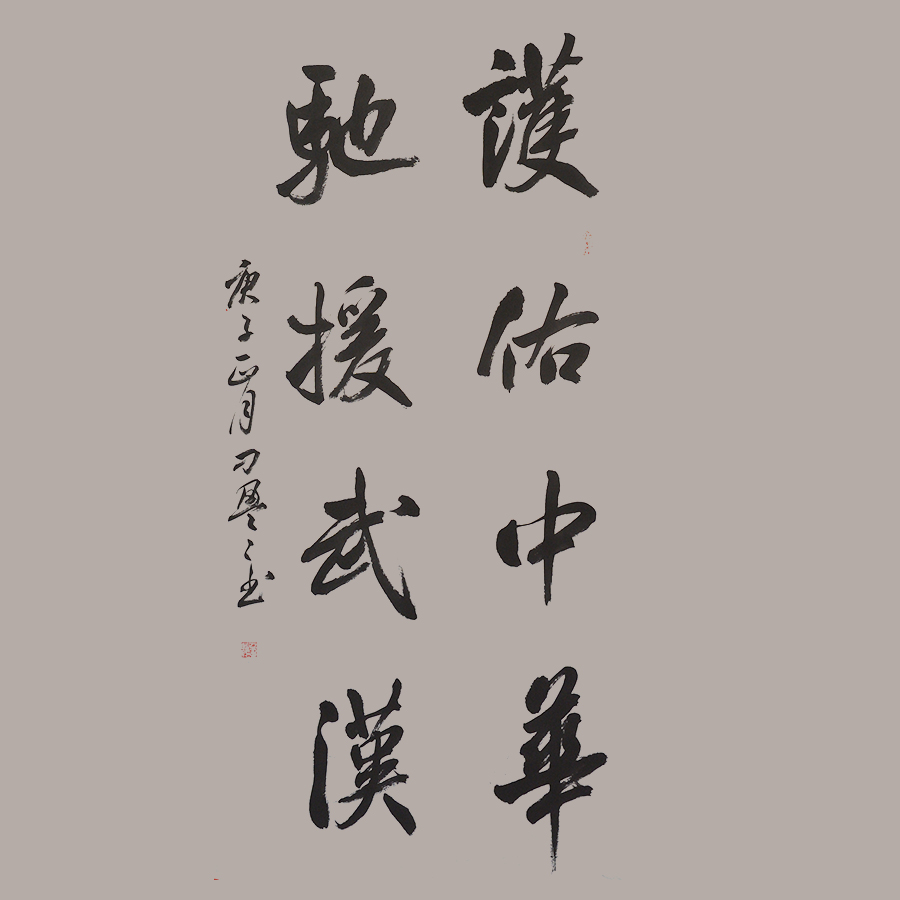 護佑中華
馳援武漢
庚子正月刁品之书